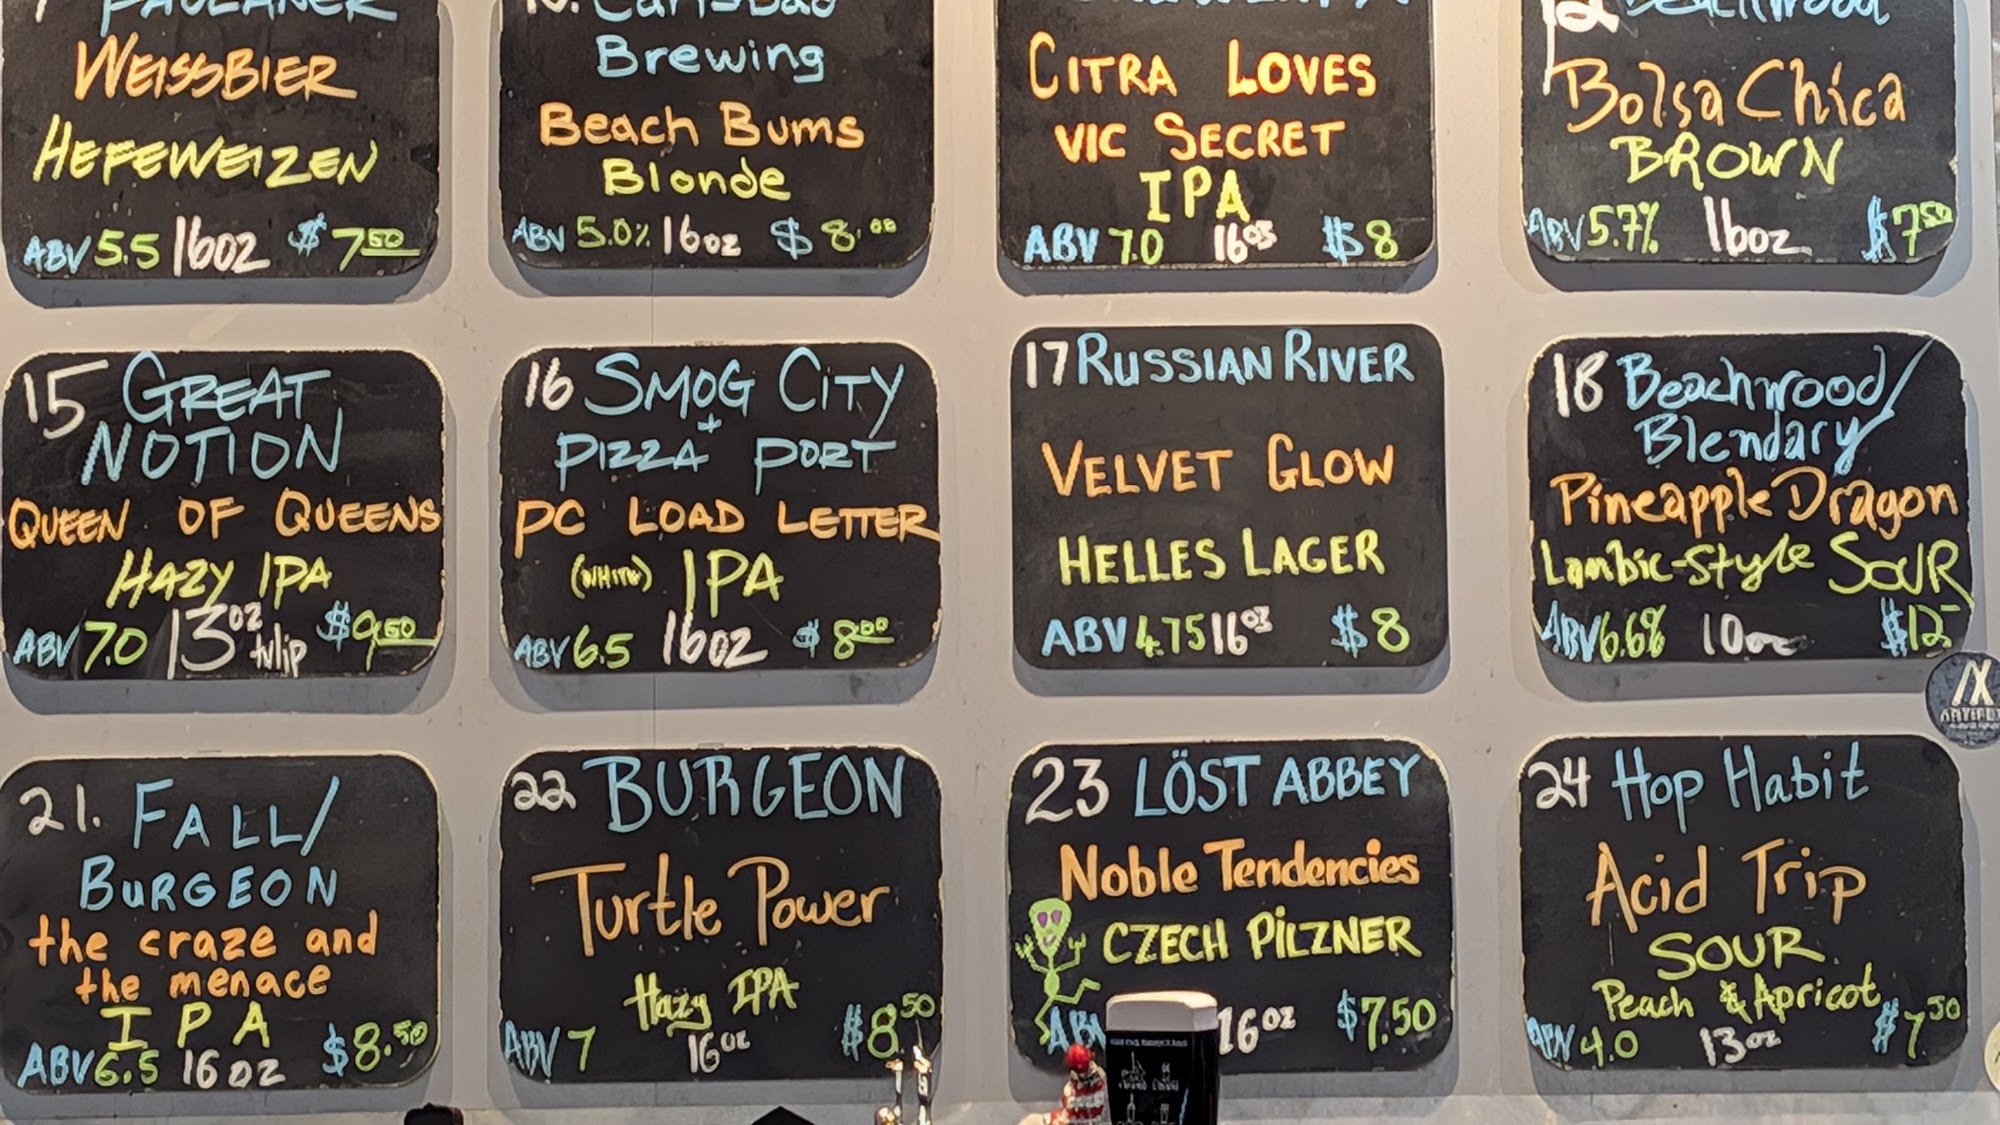 Brewing
WEISSBIER
HEFEWEIZEN
ABV 5.5 16oz $7.50
Beach Bums
Blonde
ABV 5.0% 16oz $8.00
CITRA LOVES
VIC SECRET
IPA
ABV 7.0 16oz $8
12 Beachwood
Bolsa Chica
BROWN
ABV 5.7% 16oz $7.50
15 GREAT
NOTION
QUEEN OF QUEENS
HAZY IPA
ABV 7.0 13oz tulip $9.50
16 SMOG CITY
+
PIZZA PORT
PC LOAD LETTER
(WHITE) IPA
ABV 6.5 16oz $8.00
17 RUSSIAN RIVER
VELVET GLOW
HELLES LAGER
ABV 4.75 16oz $8
18 Beachwood/
Blendary
Pineapple Dragon
Lambic-Style SOUR
ABV 6.6% 10oz $12
21. FALL/
BURGEON
the craze and
the menace
IPA
ABV 6.5 16oz $8.50
22 BURGEON
Turtle Power
Hazy IPA
ABV 7 16oz $8.50
23 LÖST ABBEY
Noble Tendencies
CZECH PILZNER
16oz $7.50
24 Hop Habit
Acid Trip
SOUR
Peach & Apricot
ABV 4.0 13oz $7.50